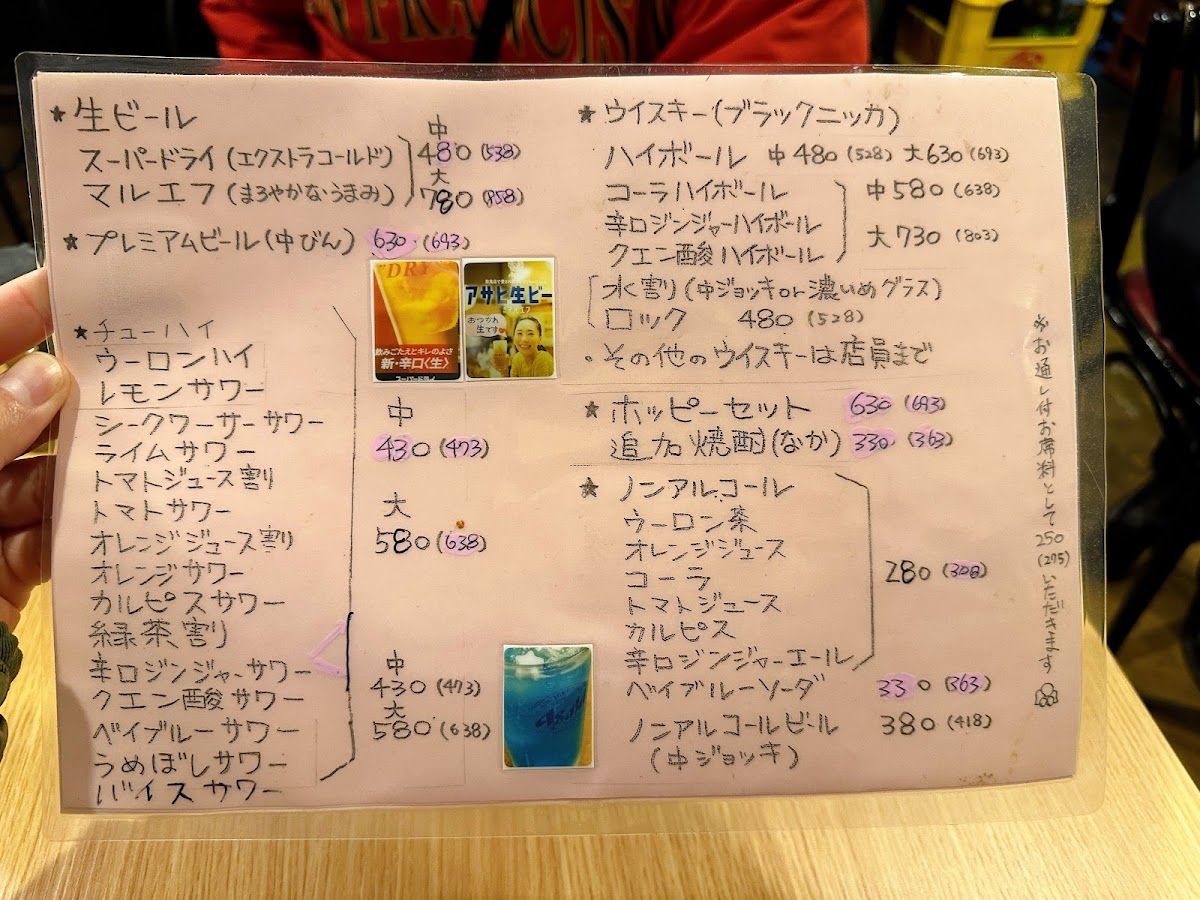 ★生ビール
中
スーパードライ(エクストラコールド) 480(538)
大
マルエフ(まろやかなうまみ) 780(858)
★プレミアムビール(中びん) 630(693)
"DRY"
飲みごたえとキレのよさ
新・辛口〈生〉
スーパードライ
アサヒ生ビー
おつかれ
生です
★チューハイ
ウーロンハイ
レモンサワー
シークワーサーサワー
ライムサワー
トマトジュース割り
トマトサワー
オレンジジュース割り
オレンジサワー
カルピスサワー
緑茶割り
辛口ジンジャーサワー
クエン酸サワー
ベイブルーサワー
うめぼしサワー
バイスサワー
中
430(473)
大
580(638)
中
430(473)
大
580(638)
Asahi
★ウイスキー(ブラックニッカ)
ハイボール 中480(528) 大630(693)
コーラハイボール 中580(638)
辛口ジンジャーハイボール
大730(803)
クエン酸ハイボール
水割り(中ジョッキor濃いめグラス)
ロック 480(528)
・その他のウイスキーは店員まで
★ホッピーセット 630(693)
追加焼酎(なか) 330(363)
★ノンアルコール
ウーロン茶
オレンジジュース
コーラ 280(308)
トマトジュース
カルピス
辛口ジンジャーエール
ベイブルーソーダ 330(363)
ノンアルコールビール 380(418)
(中ジョッキ)
※お通し付お席料として250(275)いただきます